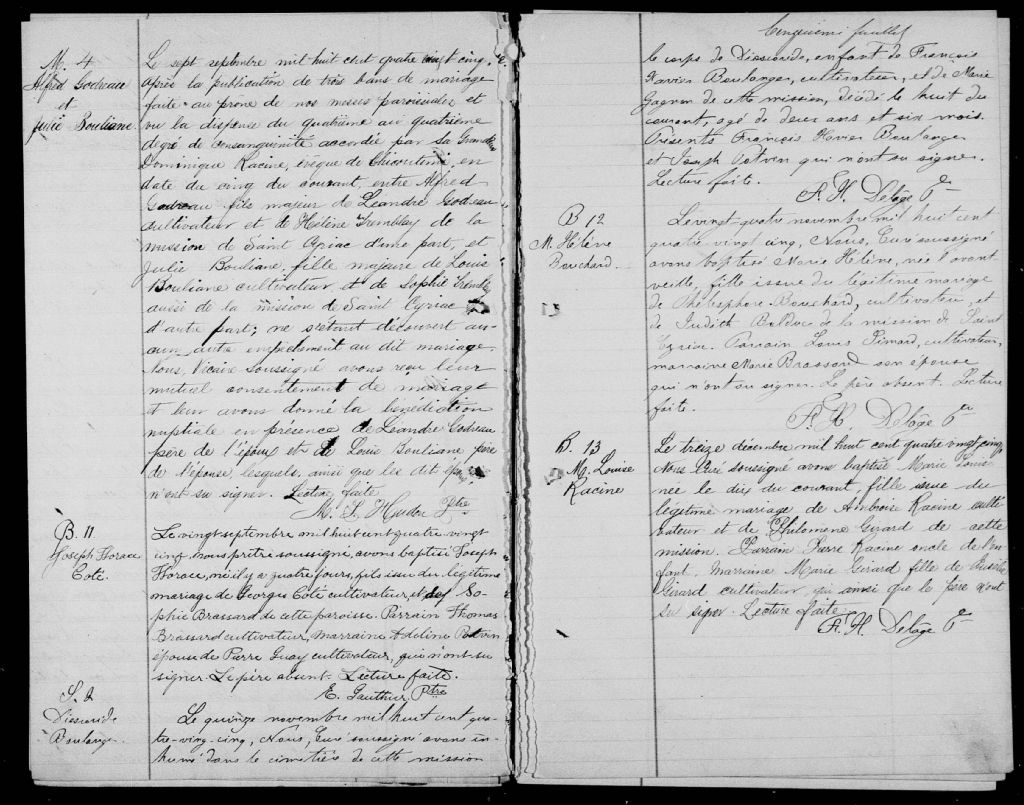 M. 4
Alfred Godreau
et
Julie Bouliane.
Le sept septembre mil huit cent quatre vingt cinq,
après la publication de trois bans de mariage
faite au prone de nos messes paroissiales et
vu la dispense du quatrième au quatrième
degré de consanguinité accordée par sa Grandeur
Dominique Racine, évêque de Chicoutimi, en
date du cinq du courant, entre Alfred
Godreau fils majeur de Léandre Godreau
cultivateur et de Hélène Tremblay de la
mission de Saint Cyriac d'une part, et
Julie Bouliane, fille majeure de Louis
Bouliane cultivateur et de Sophie Tremblay
aussi de la mission de Saint Cyriac
d'autre part; ne s'étant découvert au-
cun autre empêchement au dit mariage,
Nous, Vicaire soussigné avons reçu leur
mutuel consentement de mariage
et leur avons donné la bénédiction
nuptiale en présence de Léandre Godreau
père de l'époux et de Louis Bouliane père
de l'épouse, lesquels, ainsi que les dit époux
n'ont su signer. Lecture faite
Hudon Ptre
B. 11
Joseph Horace
Coté.
Le vingt septembre mil huit cent quatre-vingt
cinq, nous prêtre soussigné, avons baptisé Joseph
Horace, né il y a quatre jours, fils issu du légitime
mariage de Georges Coté cultivateur et de So-
phie Brassard de cette paroisse. Parrain Thomas
Brassard cultivateur, Marraine Adeline Potvin
épouse de Pierre Guay cultivateur, qui n'ont su
signer. Le père absent. Lecture faite.
E. Gauthier Ptre
S. 2
Dieudonné
Boulanger.
Le quinze novembre mil huit cent qua-
tre-ving-cinq, Nous, Curé soussigné avons in-
humé dans le cimetière de cette mission
Cinquième feuillet
le corps de Dieudonné, enfant de François
Xavier Boulanger, cultivateur, et de Marie
Gagnon de cette mission, décédé le huit du
courant, agé de deux ans et six mois.
Présents François Xavier Boulanger
et Joseph Potvin qui n'ont su signer.
Lecture faite.
F. X. Delage Ptre
B 12
M. Hélène
Bouchard.
Le vingt-quatre novembre mil huit cent
quatre-vingt cinq, Nous, Curé soussigné
avons baptisé Marie Hélène, née l'avant
veille, fille issue du légitime mariage
de Thélesphore Bouchard, cultivateur, et
de Judith Bolduc de la mission de Saint
Cyriac. Parrain Louis Simard, cultivateur,
marraine Marie Brassard son épouse
qui n'ont su signer. Le père absent. Lecture
faite.
F. X. Delage Ptre
B. 13
M. Louise
Racine
Le treize décembre mil huit cent quatre vingt cinq
Nous Curé soussigné avons baptisé Marie Louise
née le dix du courant, fille issue du
légitime mariage de Ambroise Racine culti-
vateur et de Philomène Girard de cette
mission. Parrain Pierre Racine oncle de l'en-
fant. Marraine Marie Girard fille de
Girard cultivateur, qui ainsi que le père n'ont
su signer. Lecture faite.
F. X. Delage Ptre